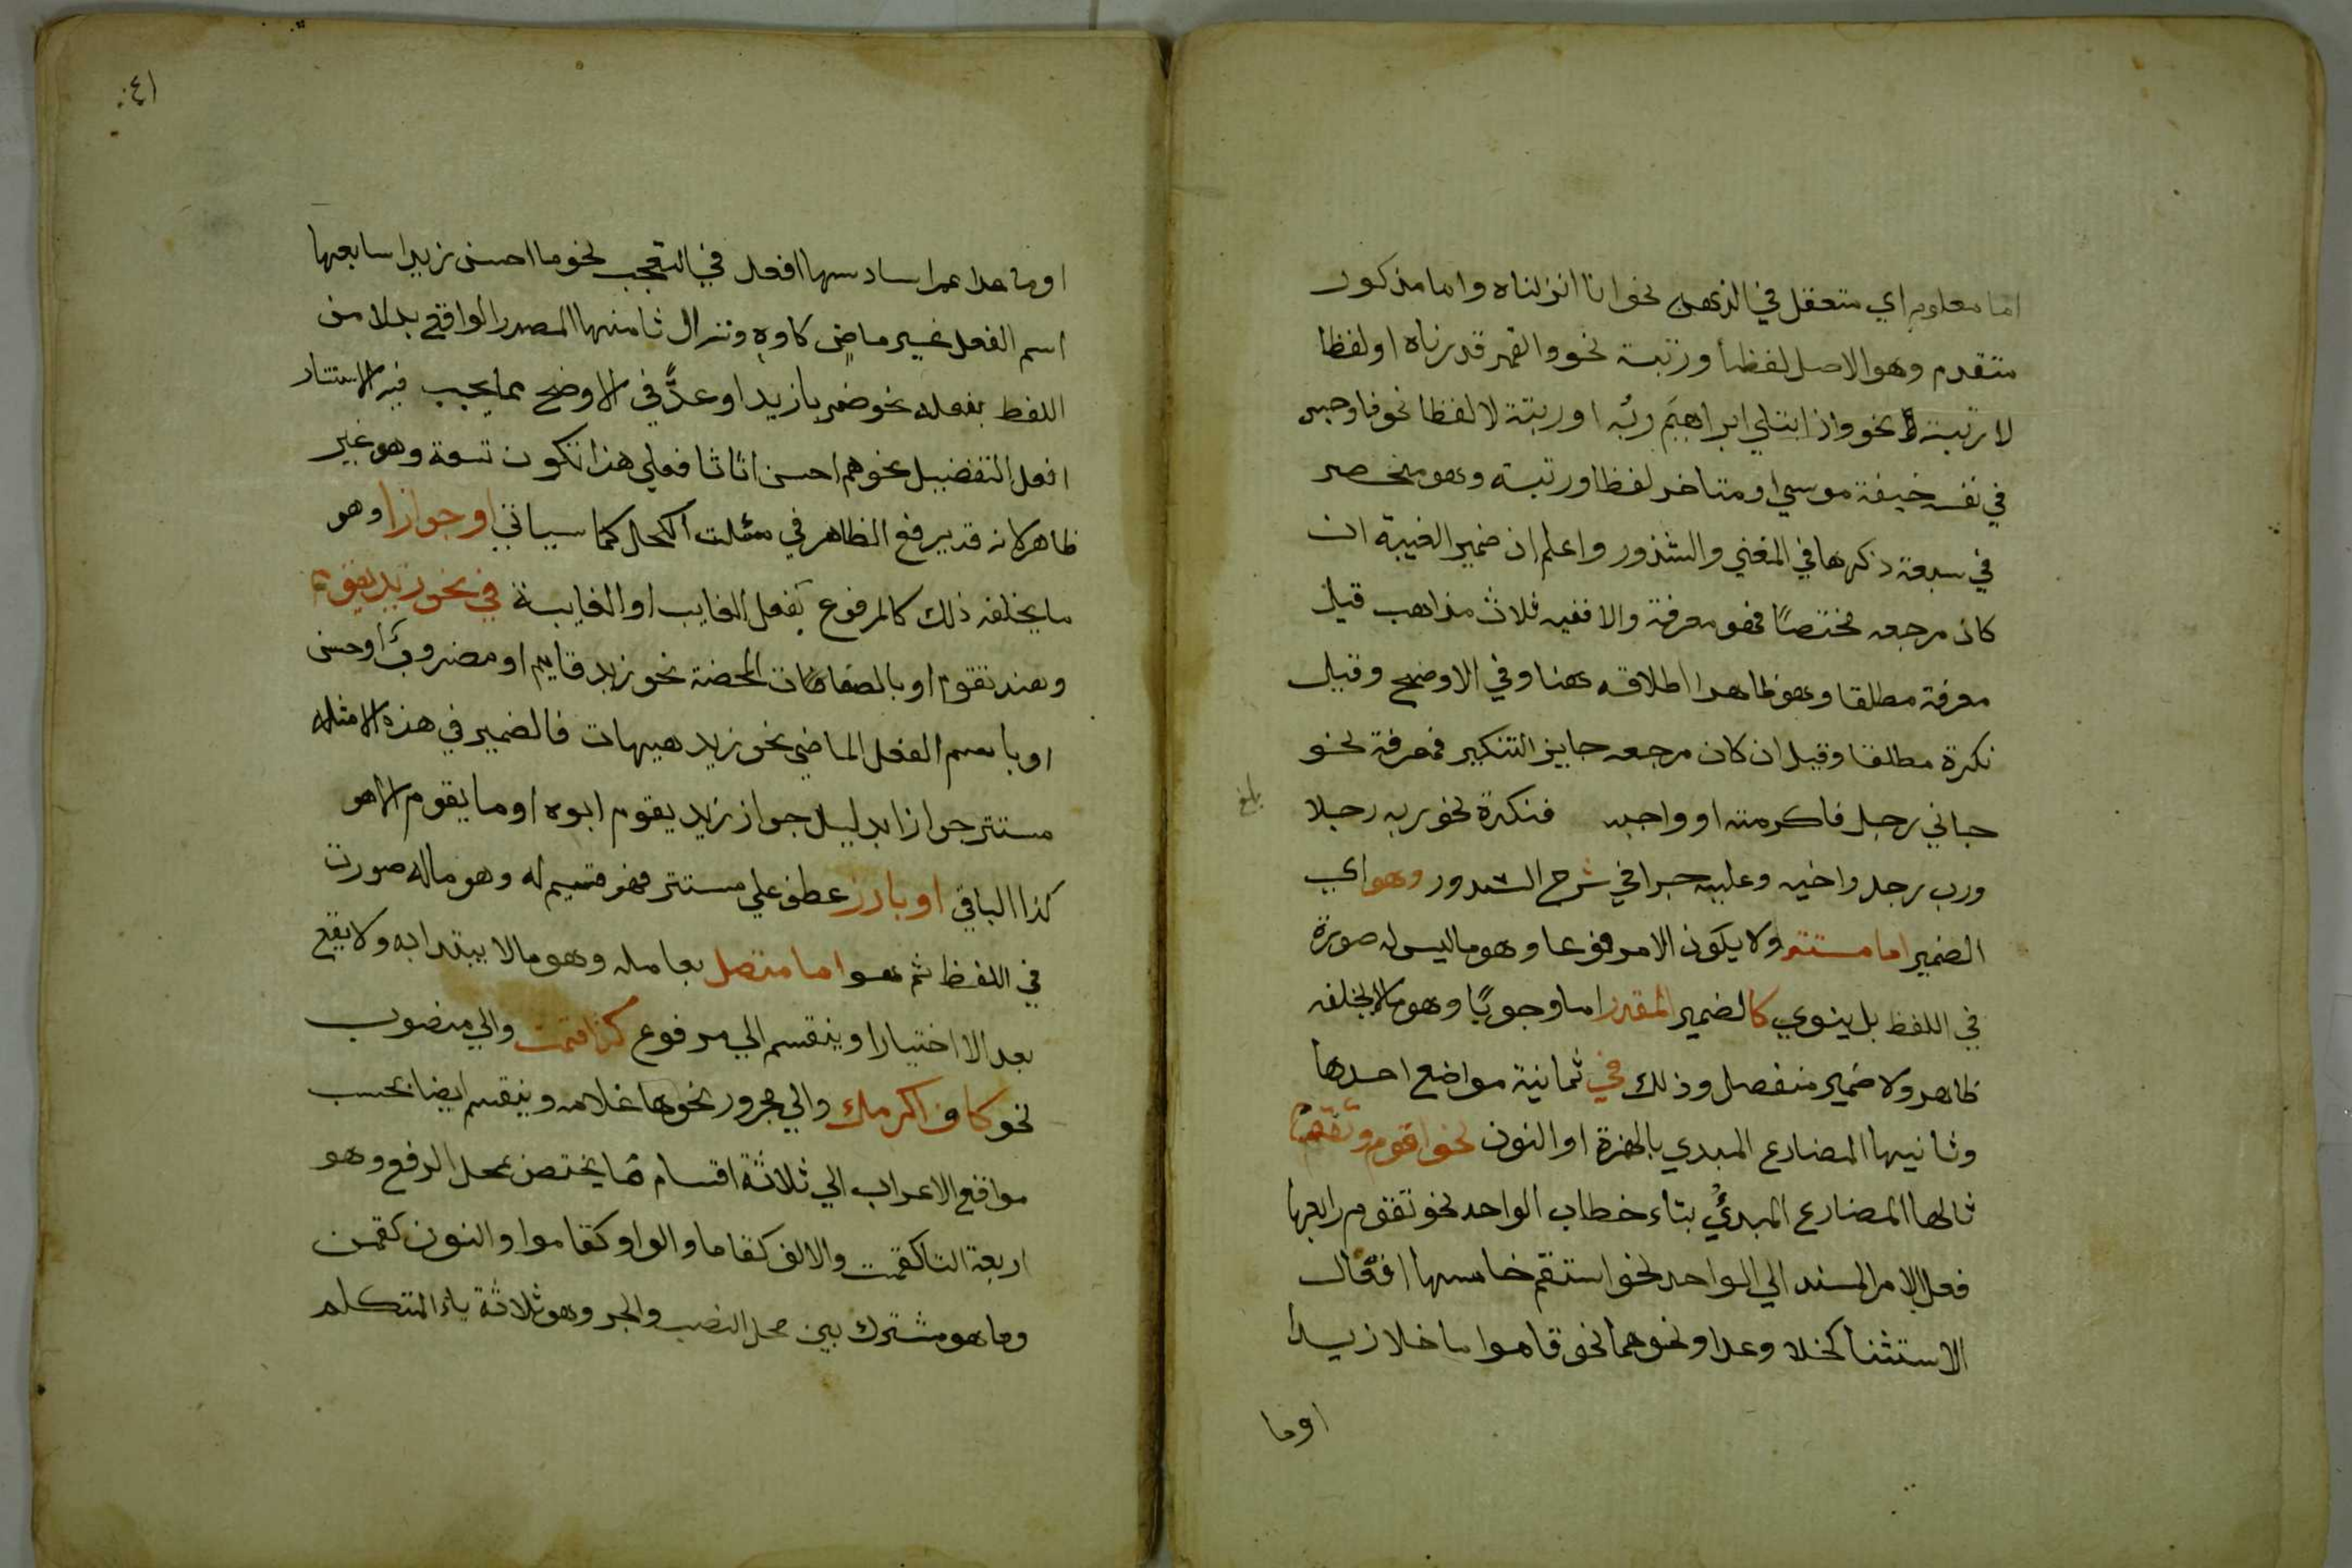 اما معلوم اي متعقل في الذهن نحو انا انزلناه واما مذكور
متقدم وهو الاصل لفظا ورتبة نحو والقمر قدرناه او لفظا
لا رتبة نحو واذ ابتلي ابراهيم ربه او رتبة لا لفظا نحو فاوجس
في نفسه خيفة موسي او متاخر لفظا ورتبة وهو منحصر
في سبعة ذكرها في المغني والشذور واعلم ان ضمير الغيبة ان
كان مرجعه مختصًا فهو معرفة والا ففيه ثلاث مذاهب قيل
معرفة مطلقا وهو ظاهر اطلاقه هنا وفي الاوضح وقيل
نكرة مطلقا وقيل ان كان مرجعه جايز التنكير فمعرفة نحو
جاني رجل فاكرمته او واجبه فنكرة نحو ربه رجلا
ورب رجل واخيه وعليه جرا في شرح الشدور وهو اي
الضمير اما مستتر ولا يكون الا مرفوعا وهو ما ليس له صورة
في اللفظ بل ينوي كالضمير المقدر اما وجوبًا وهو ما لا يخلفه
ظاهر ولا ضمير منفصل وذلك في ثمانية مواضع احدها
وثانيها المضارع المبدي بالهمزة او النون نحو اقوم ونقوم
ثالثها المضارع المبدئ بتاء خطاب الواحد نحو تقوم رابعها
فعل الامر المسند الي الواحد نحو استقم خامسها افعال
الاستثنا كخلا وعدا ونحوهما نحو قاموا ما خلا زيدا
اوما
بلغ
٤١
او ما عدا عمرا سادسها افعل في التعجب نحو ما احسن زيدا سابعها
اسم الفعل غير ماضٍ كاوه ونزال ثامنها المصدر الواقع بدلا من
اللفظ بفعله نحو ضربا زيدا وعدَّ في الاوضح مما يجب فيه الاستتار
افعل التفضيل نحو هم احسن اثاثا فعلي هذا تكون تسعة وهو غير
ظاهر لانه قد يرفع الظاهر في مسئلت الكحل كما سياتي او جوازا وهو
ما يخلفه ذلك كالمرفوع بفعل الغايب او الغايبة في نحو زيد يقوم
وهند تقوم او بالصفات المحضة نحو زيد قايم او مضروب او حسن
او باسم الفعل الماضي نحو زيد هيهات فالضمير في هذه الامثله
مستتر جوازا بدليل جواز زيد يقوم ابوه او ما يقوم الا هو
كذا الباقي او بارز عطف علي مستتر فهو قسيم له وهو ماله صورت
في اللفظ ثم هو اما متصل بعامله وهو مالا يبتدا به ولا يقع
بعد الا اختيارا وينقسم الي مرفوع كتا قمت والي منصوب
نحو كاف اكرمك والي مجرور نحو ها غلامه وينقسم ايضا بحسب
مواقع الاعراب الي ثلاثة اقسام ما يختص بمحل الرفع وهو
اربعة التا كقمت والالف كقاما والواو كقاموا والنون كقمن
وما هو مشترك بين محل النصب والجر وهو ثلاثة ياء المتكلم